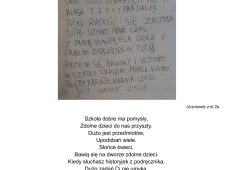 KLASA 1 2 3 I TAK DALEJ
TUTAJ RADOŚĆ SIĘ ZACZYNA
TUTAJ SZYBKO PŁYNIE CZAS
Z PANIĄ
PANEM DYREKTOREM TUTAJ
RAZEM SIĘ BAWIMY I UCZYMY
W SZKOLE CZASEM
TO JEST NASZE ŻYCIE
Uczniowie z kl. 2a
Szkoła dobre ma pomysły,
Zdolne dzieci do nas przyszły.
Dużo jest przedmiotów,
Upodobań wiele.
Słońce świeci,
Bawią się na dworze zdolne dzieci.
Kiedy słuchasz historyjek z podręcznika,
Dużo zadań Ci nie umyka.